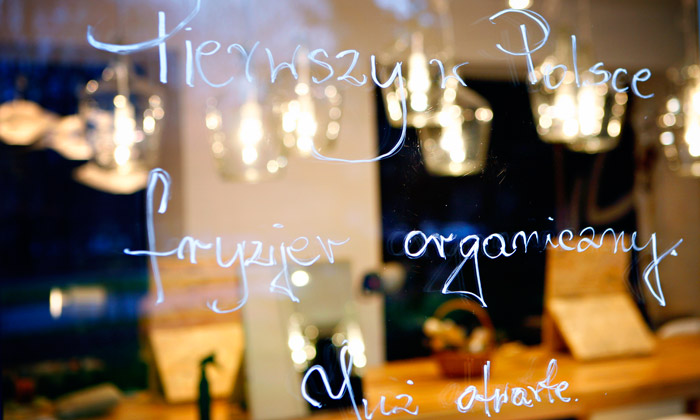 Pierwszy w Polsce
fryzjer organiczny.
Już otwarte.